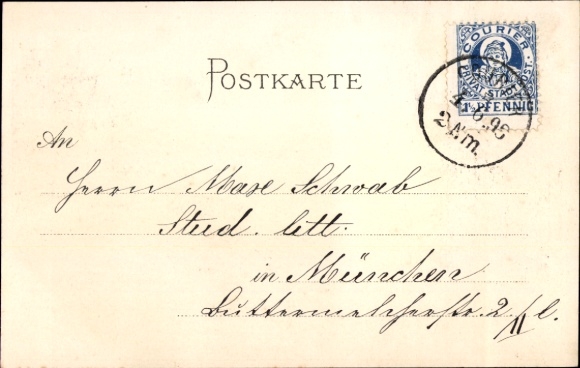 COURIER
PRIVAT STADTPOST
1½ PFENNIG
COURIER
4.6.96
2 Nm.
POSTKARTE
An
Herrn Max Schwab
Stud. litt.
in München
Buttermelcherstr. 2/II l.